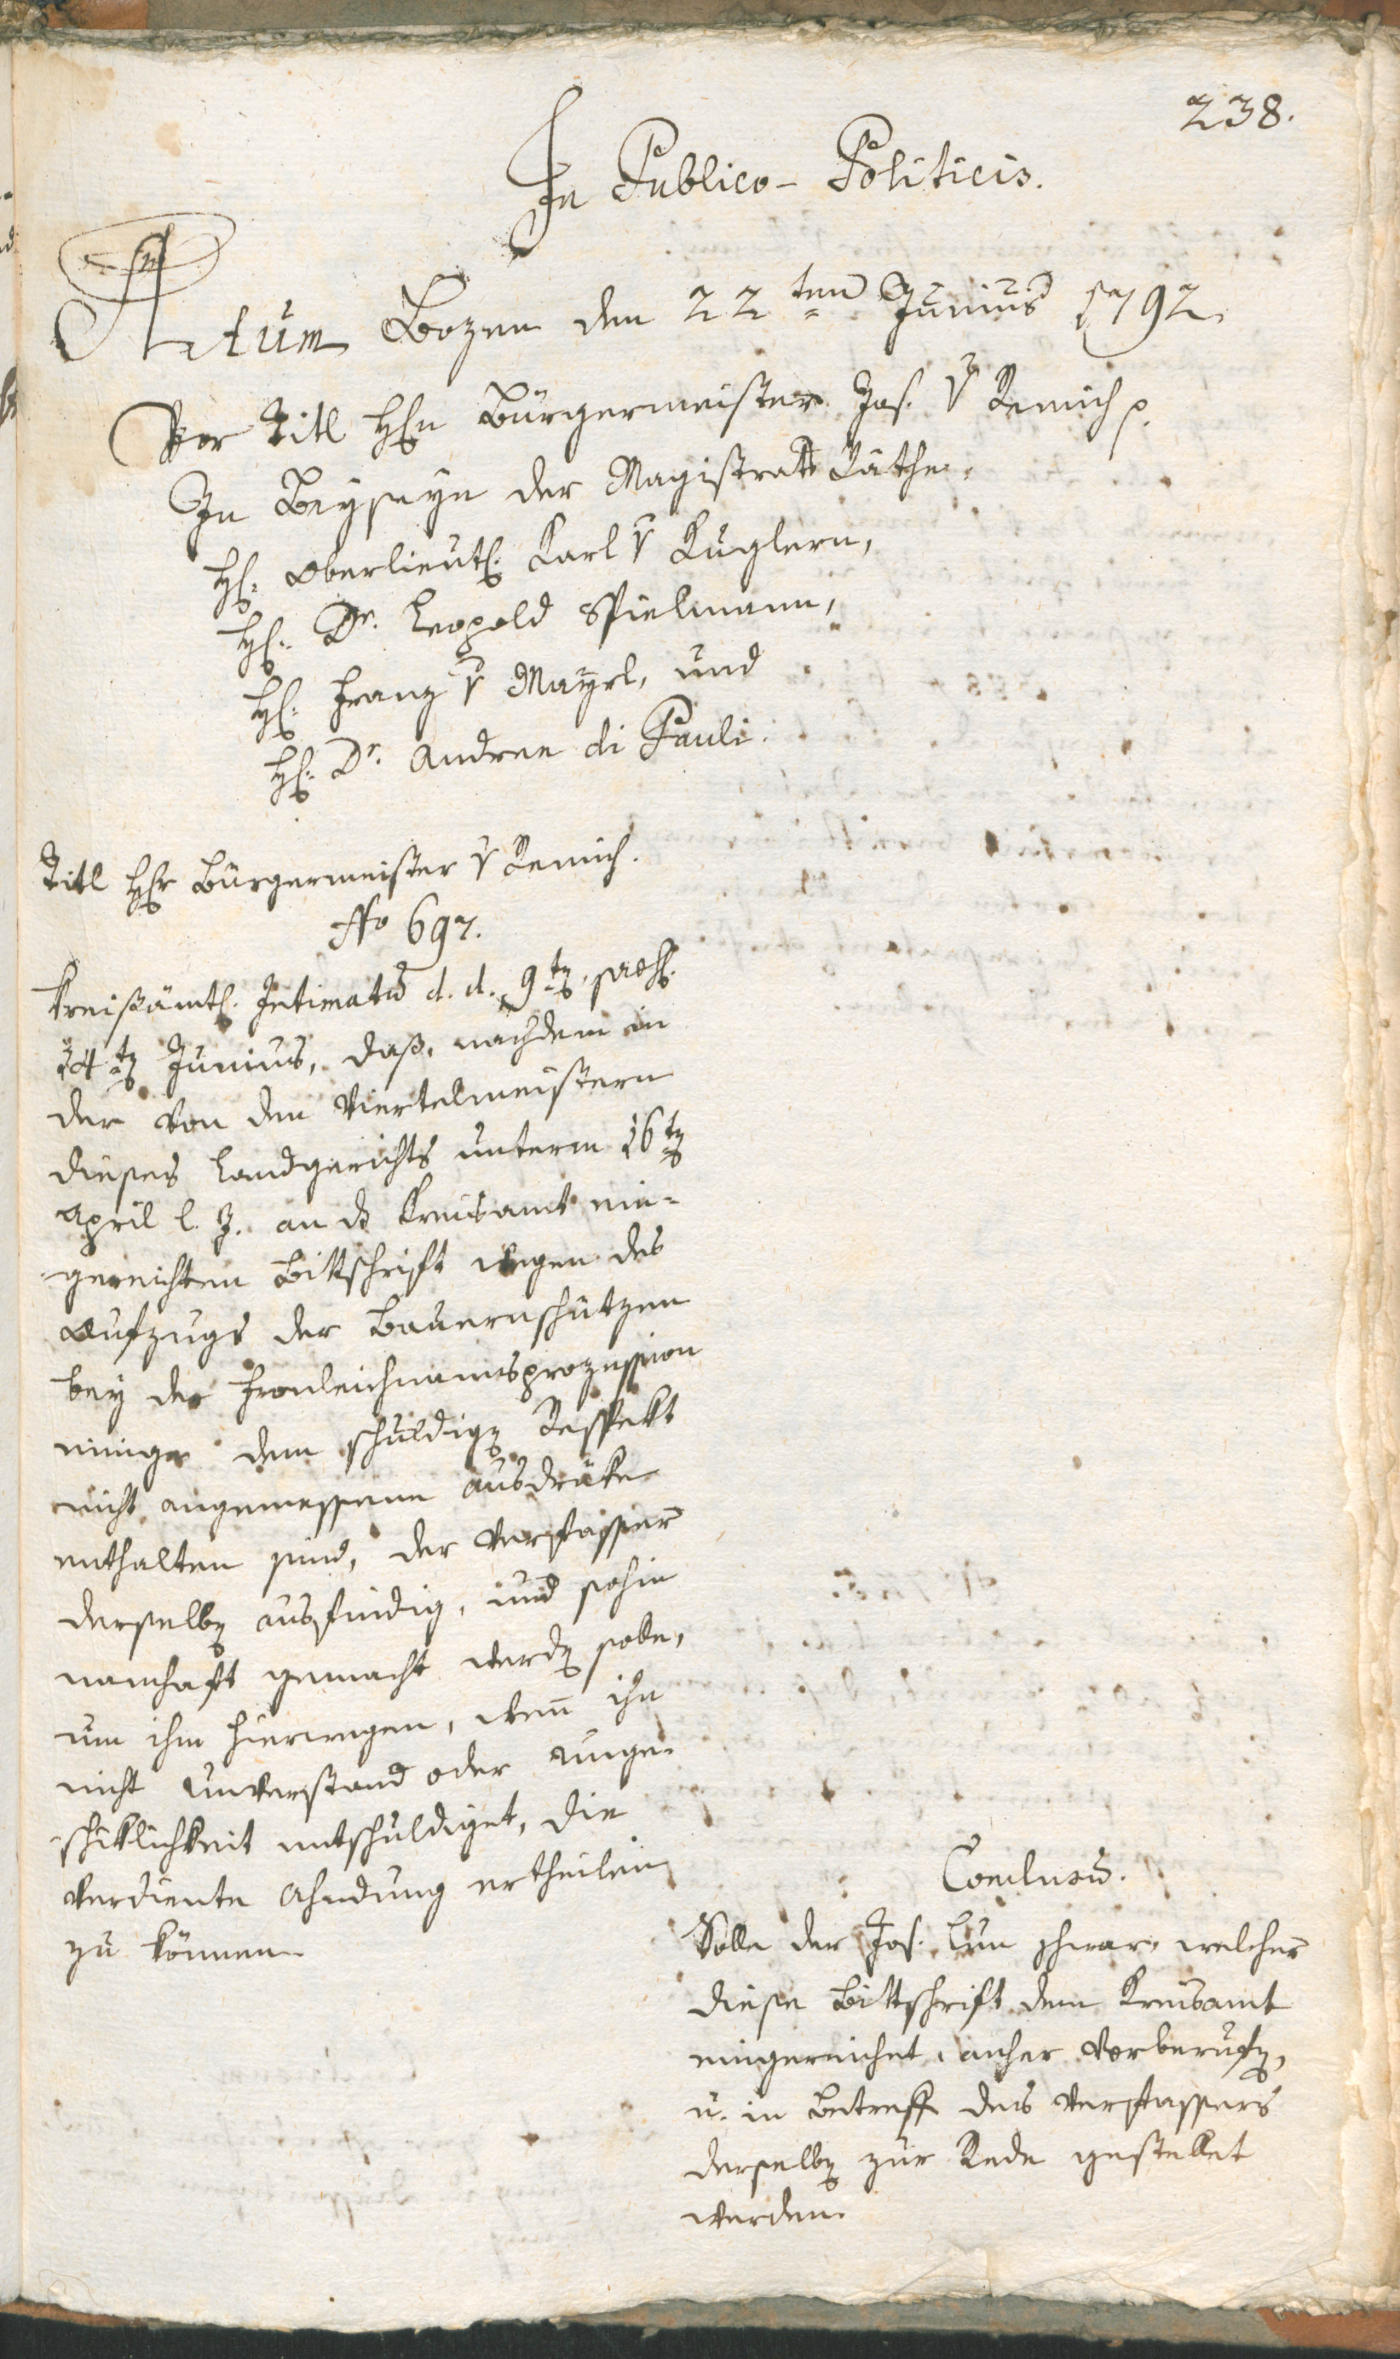 238.
In Publico-Politicis.
Actum Bozen den 22ten Junius 1792.
Vor Titl Hℓn Bürgermeister Jos. v Remich p.
In Beyseyn der Magistrats Räthe.
Hℓ: Oberlieutℓ: Karl v Kuglern,
Hℓ: Dr. Leopold Spielmann,
Hℓ: Franz v Mayrl, und
Hℓ: Dr. Andree di Pauli.
Titl Hℓr Bürgermeister v Remich.
No 697.
Kreisämtℓ: Intimatū d. d. 9tẽ, præsℓ:
14tẽ Junius, daß, nachdem in
der von den Viertelmeistern
dieses Landgerichts unterm 16tẽ
April l. J. an ds Kreisamt ein-
gereichten Bittschrift wegen des
Aufzugs der Bauernschützen
bey der Fronleichnamsprozession
einige dem schuldigẽ Respekt
nicht angemessene Ausdrüke
enthalten sind, der Verfasser
derselbẽ ausfindig, und sohin
namhaft gemacht werdẽ solle,
um ihm hierwegen, wenn ihn
nicht Unverstand oder Unge-
schiklichkeit entschuldiget, die
verdiente Ahndung ertheilen
zu können.
Conclusū.
Solle der Jos. Lun welcher
diese Bittschrift dem Kreisamt
eingereichet, anher vorberufẽ,
u. in Betreff des Verfassers
derselbẽ zur Rede gestellet
werden.